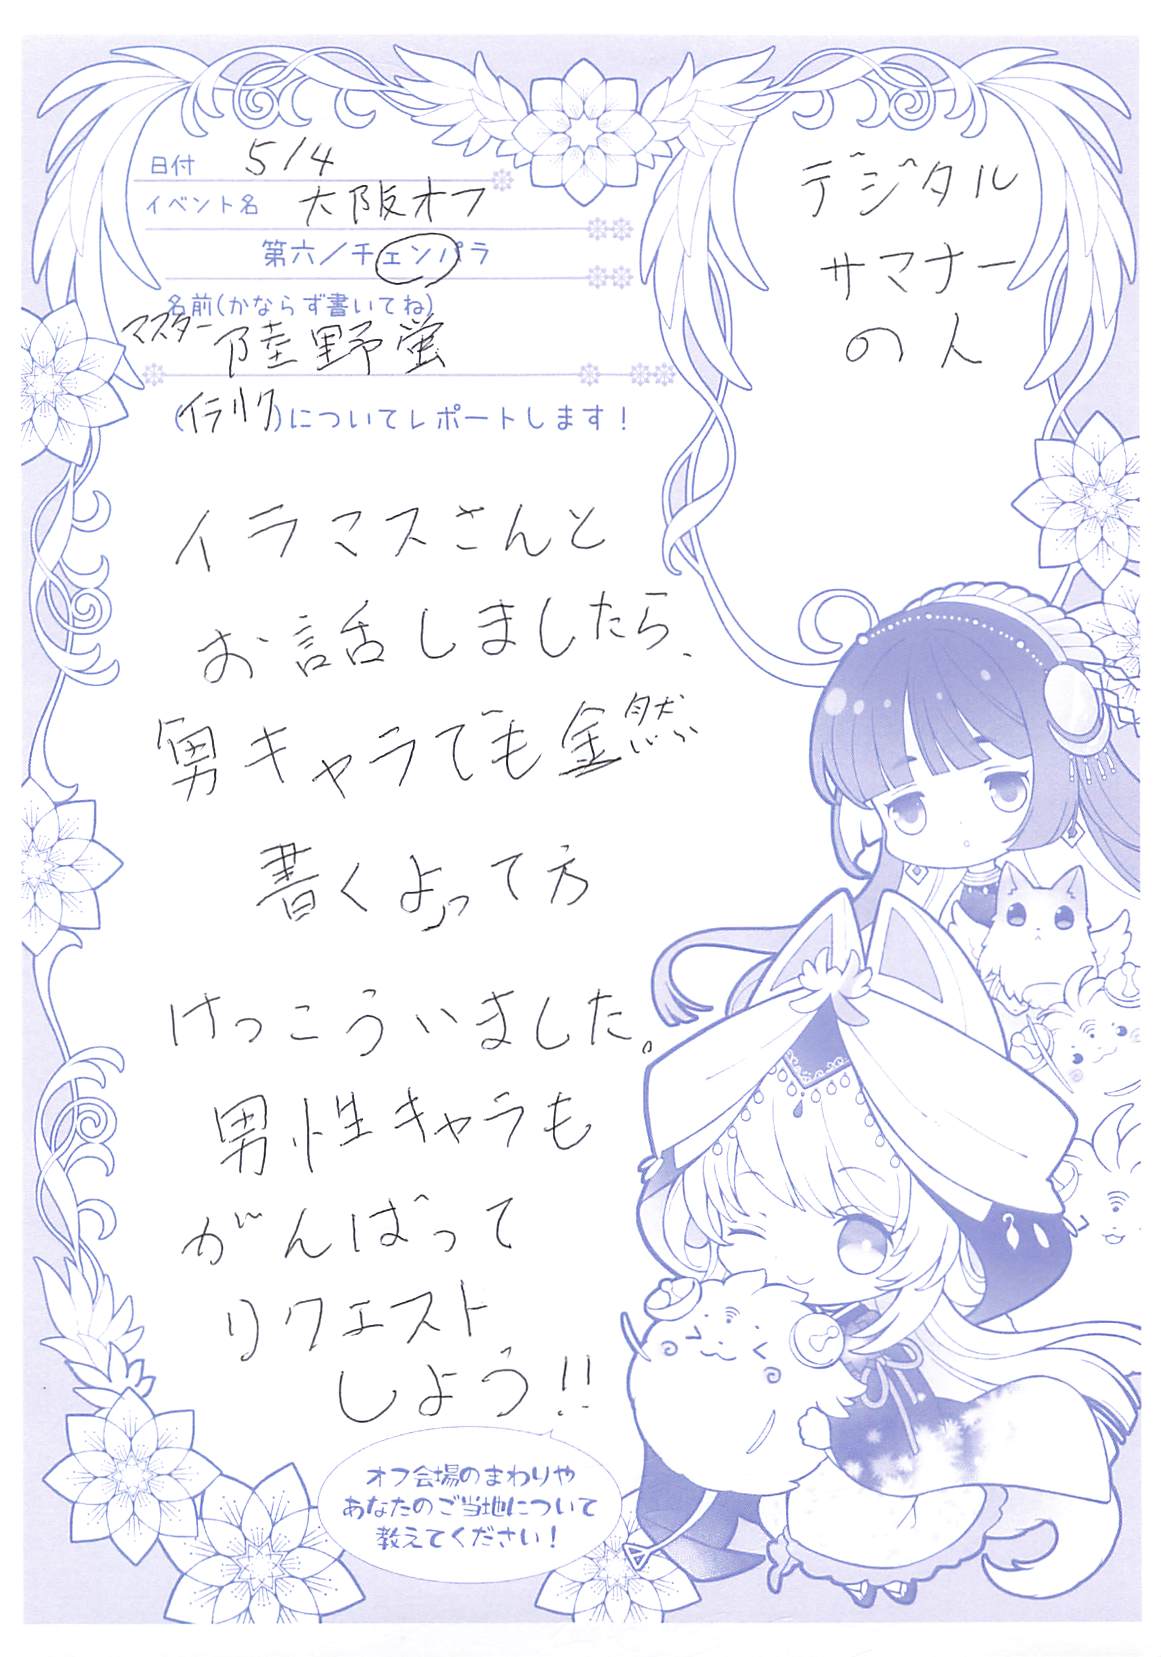 日付 5/4
イベント名 大阪オフ
第六/チェンパラ
名前(かならず書いてね)
マスター 陸野蛍
(イラリク)についてレポートします!
デジタル
サマナー
の人
イラマスさんと
お話しましたら、
男キャラでも全然
書くよって方
けっこういました。
男性キャラも
がんばって
リクエスト
しよう!!
オフ会場のまわりや
あなたのご当地について
教えてください!